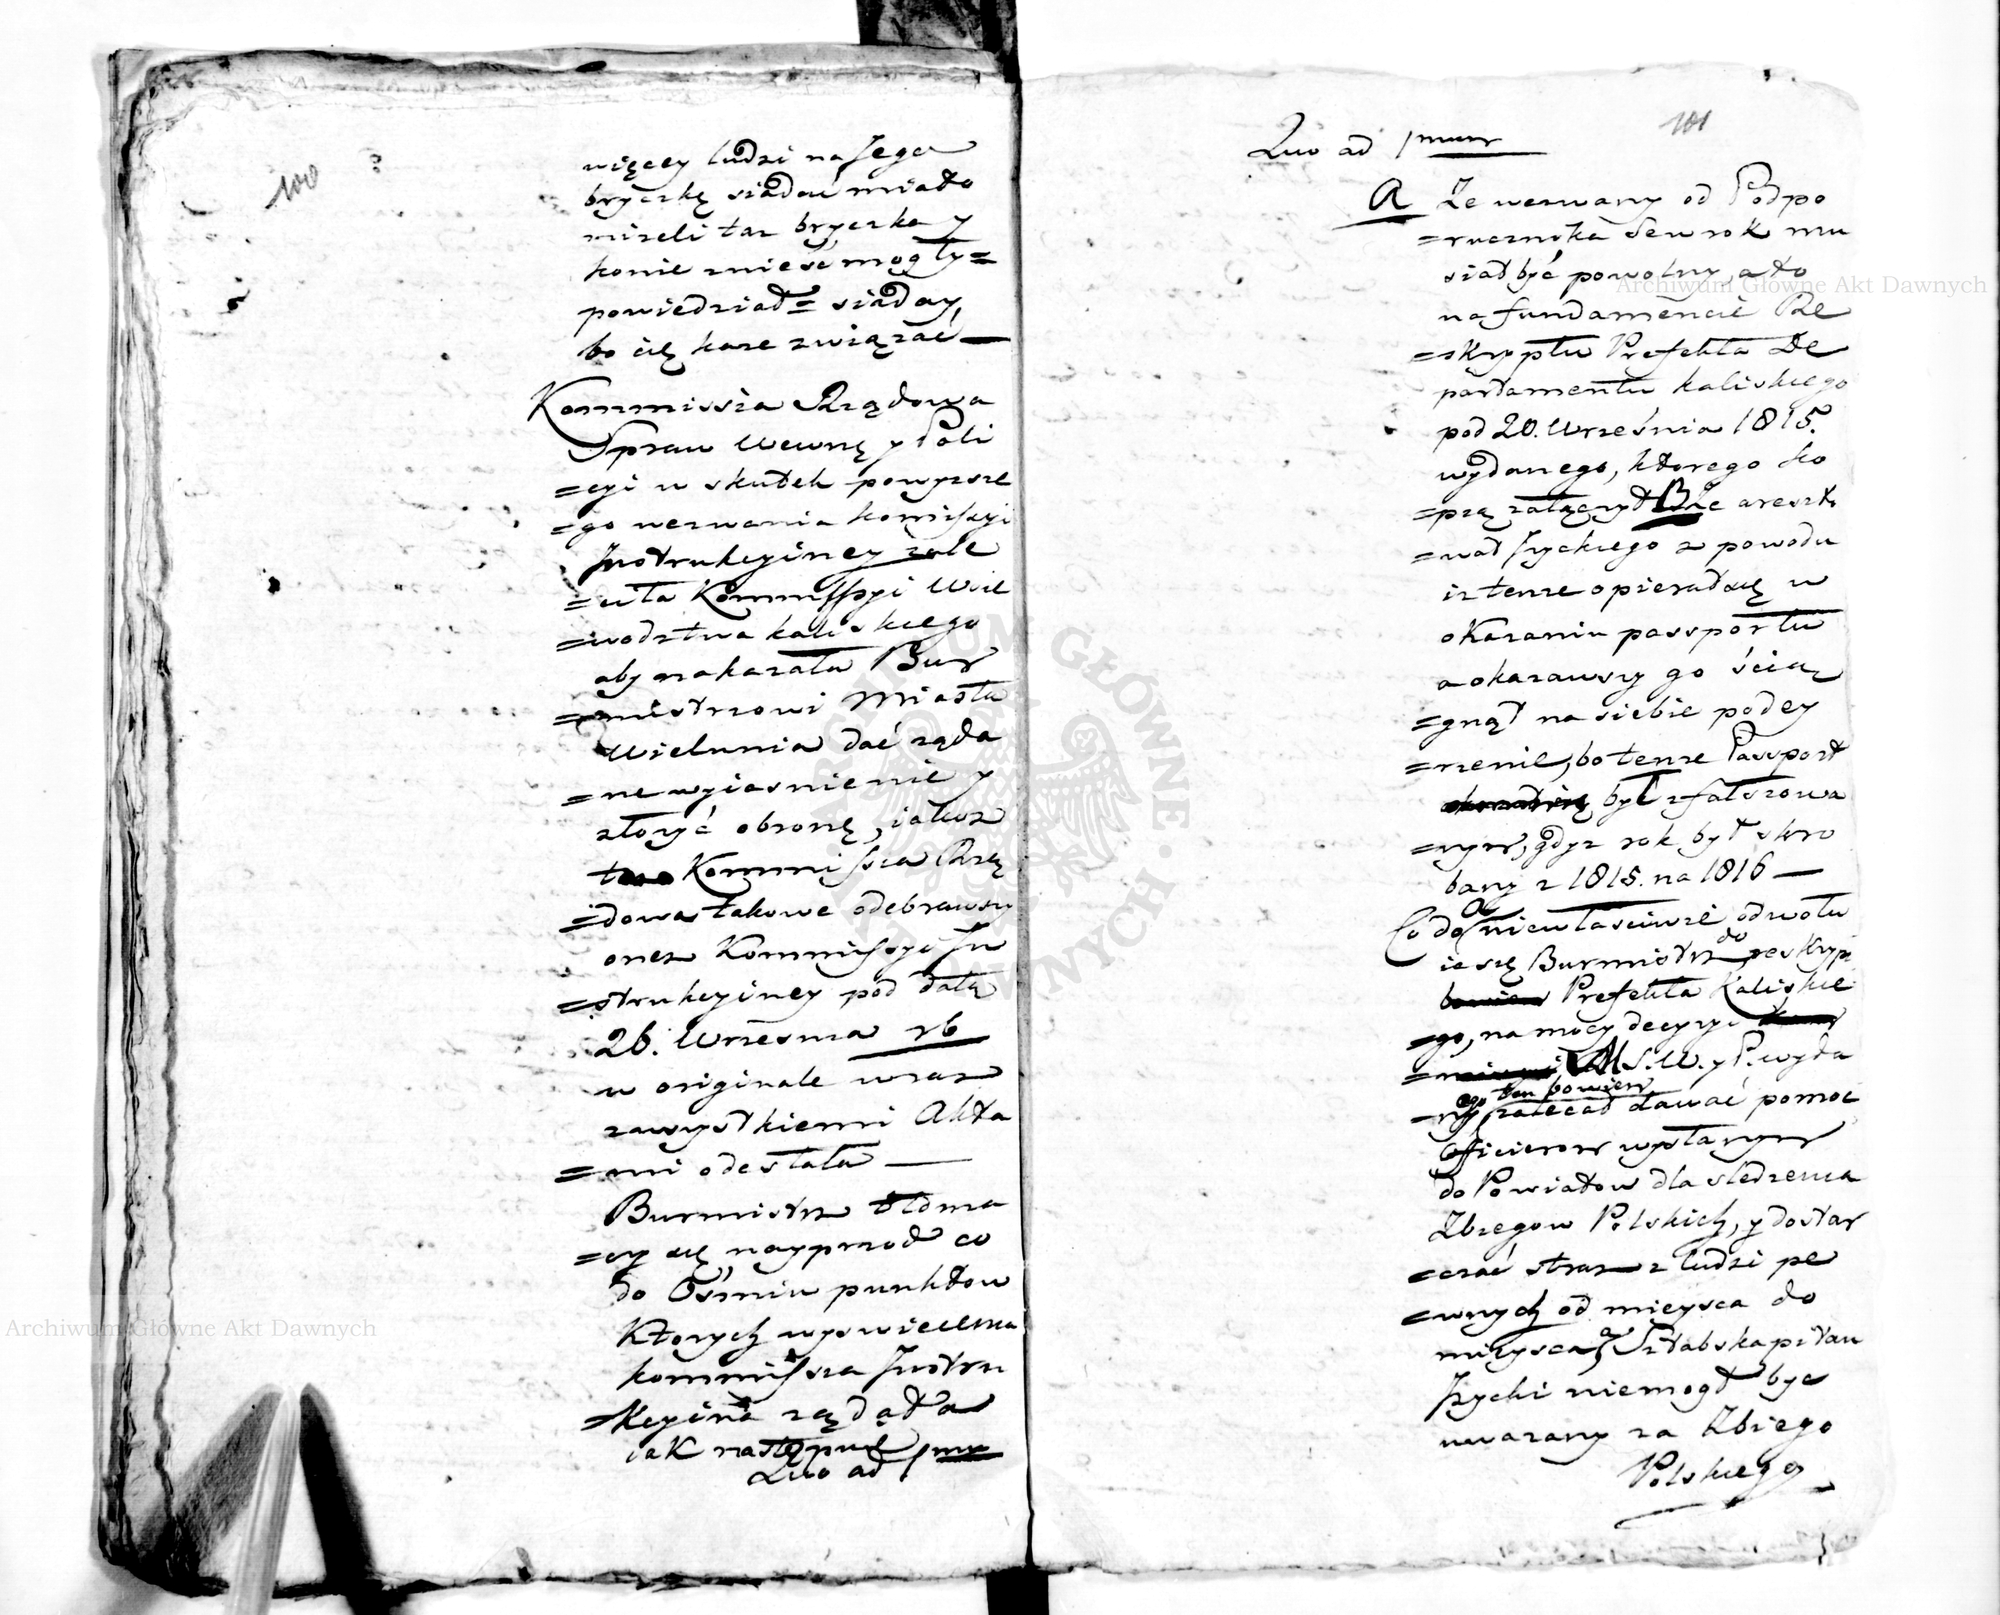 100
więcey ludzi na Jego
bryczkę siadać miało
nizeli taz bryczka y
konie znieść mogły=
powiedział= siaday,
bo cię każe związać —
Kommissia Rządowa
Spraw Wewnę y Poli
=cyi w skutek powyzsze
=go wezwania komissyi
Instrukcyiney zale
=ciła Kommissyi Woie
=wodztwa kaliskiego
aby nakazała Bur
=mistrzowi Miasta
Wielunia dać ząda
=ne wyiasnienie y
złozyć obronę, iakoz
Kommissia Rzą
=dowa takowe odebrawszy
onez Kommissyi In
=strukcyiney pod datą
26. Wrzesnia rb
w originale wraz
zwszystkiemi Akta
=mi odesłała —
Burmistrz tłoma
=czy się nayprzod co
do Ośmiu punktow
Ktorych wyswiecenia
kommissia Instru
=kcyina ządała
iak następuie
Quo ad 1mum
101
Quo ad 1mum
A Ze wezwany od Podpo
=rucznika Sewrok mu
siał być powolny, a to
na fundamencie Re
=skryptu Prefekta De
partamentu kaliskiego
pod 20. Września 1815.
wydanego, ktorego ko
=pią załączył B Ze areszto
=wał Jzyckiego z powodu
iz tenze opierał się w
okazaniu passportu
a okazawszy go ścią
=gnął na siebie podey
=rzenie, bo tenze Passport
był zfałszowa
=nym, gdyz rok był skro
bany z 1815. na 1816 —
Co do A niewłasciwie odwołu
ie się Burmistrz do reskryp
Prefekta Kaliskie
=go, na mocy decyzyi
M S. W. y P. wyda
=nego ten bowiem zalecał dawać pomoc
Officierom wysłanym
do Powiatow dla sledzenia
Zbiegow Polskich, y dostar
=czać straz z ludzi pe
=wnych od mieysca do
mieysca, a Sztabskapitan
Jzycki niemogł byc
uwazany za Zbiega
Polskiego
Archiwum Główne Akt Dawnych
Archiwum Główne Akt Dawnych
ARCHIWUM GŁÓWNE AKT DAWNYCH